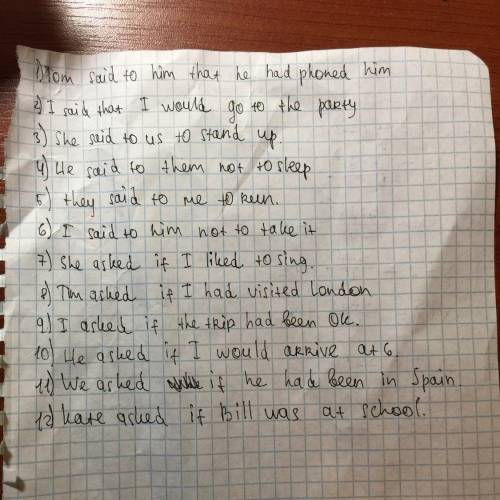 1) Tom said to him that he had phoned him
2) I said that I would go to the party
3) She said to us to stand up.
4) He said to them not to sleep
5) they said to me to run.
6) I said to him not to take it
7) She asked if I liked to sing.
8) Tim asked if I had visited London
9) I asked if the trip had been OK.
10) He asked if I would arrive at 6.
11) We asked if he had been in Spain.
12) Kate asked if Bill was at school.